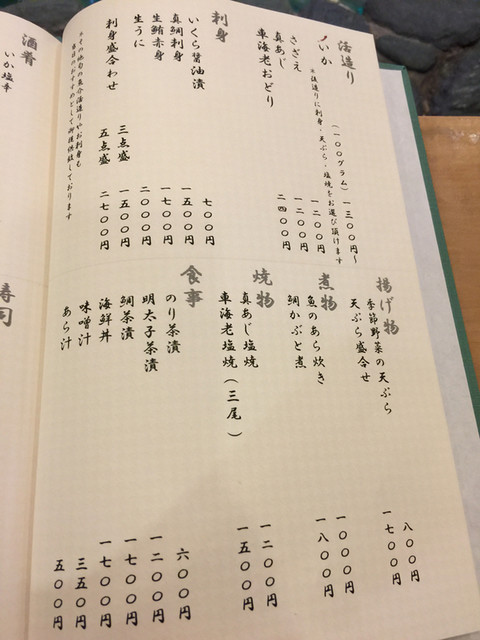 活造り
いか
(一〇〇グラム)一三〇〇円〜
※後造りに刺身・天ぷら・塩焼をお選び頂けます
さざえ 一二〇〇円
真あじ 一二〇〇円
車海老おどり 二四〇〇円
刺身
いくら醤油漬 七〇〇円
真鯛刺身 一五〇〇円
生鮪赤身 一七〇〇円
生うに 二〇〇〇円
刺身盛合わせ 三点盛 一五〇〇円
五点盛 二七〇〇円
その他旬の魚介活造りやお刺身も
毎日のおすすめとして御提供致しております
揚げ物
季節野菜の天ぷら 八〇〇円
天ぷら盛合せ 一七〇〇円
煮物
魚のあら炊き 一〇〇〇円
鯛かぶと煮 一八〇〇円
焼物
真あじ塩焼 一二〇〇円
車海老塩焼(三尾) 一五〇〇円
食事
のり茶漬 六〇〇円
明太子茶漬 一二〇〇円
鯛茶漬 一七〇〇円
海鮮丼 一七〇〇円
味噌汁 三五〇円
あら汁 五〇〇円
酒肴
いか塩辛
寿司